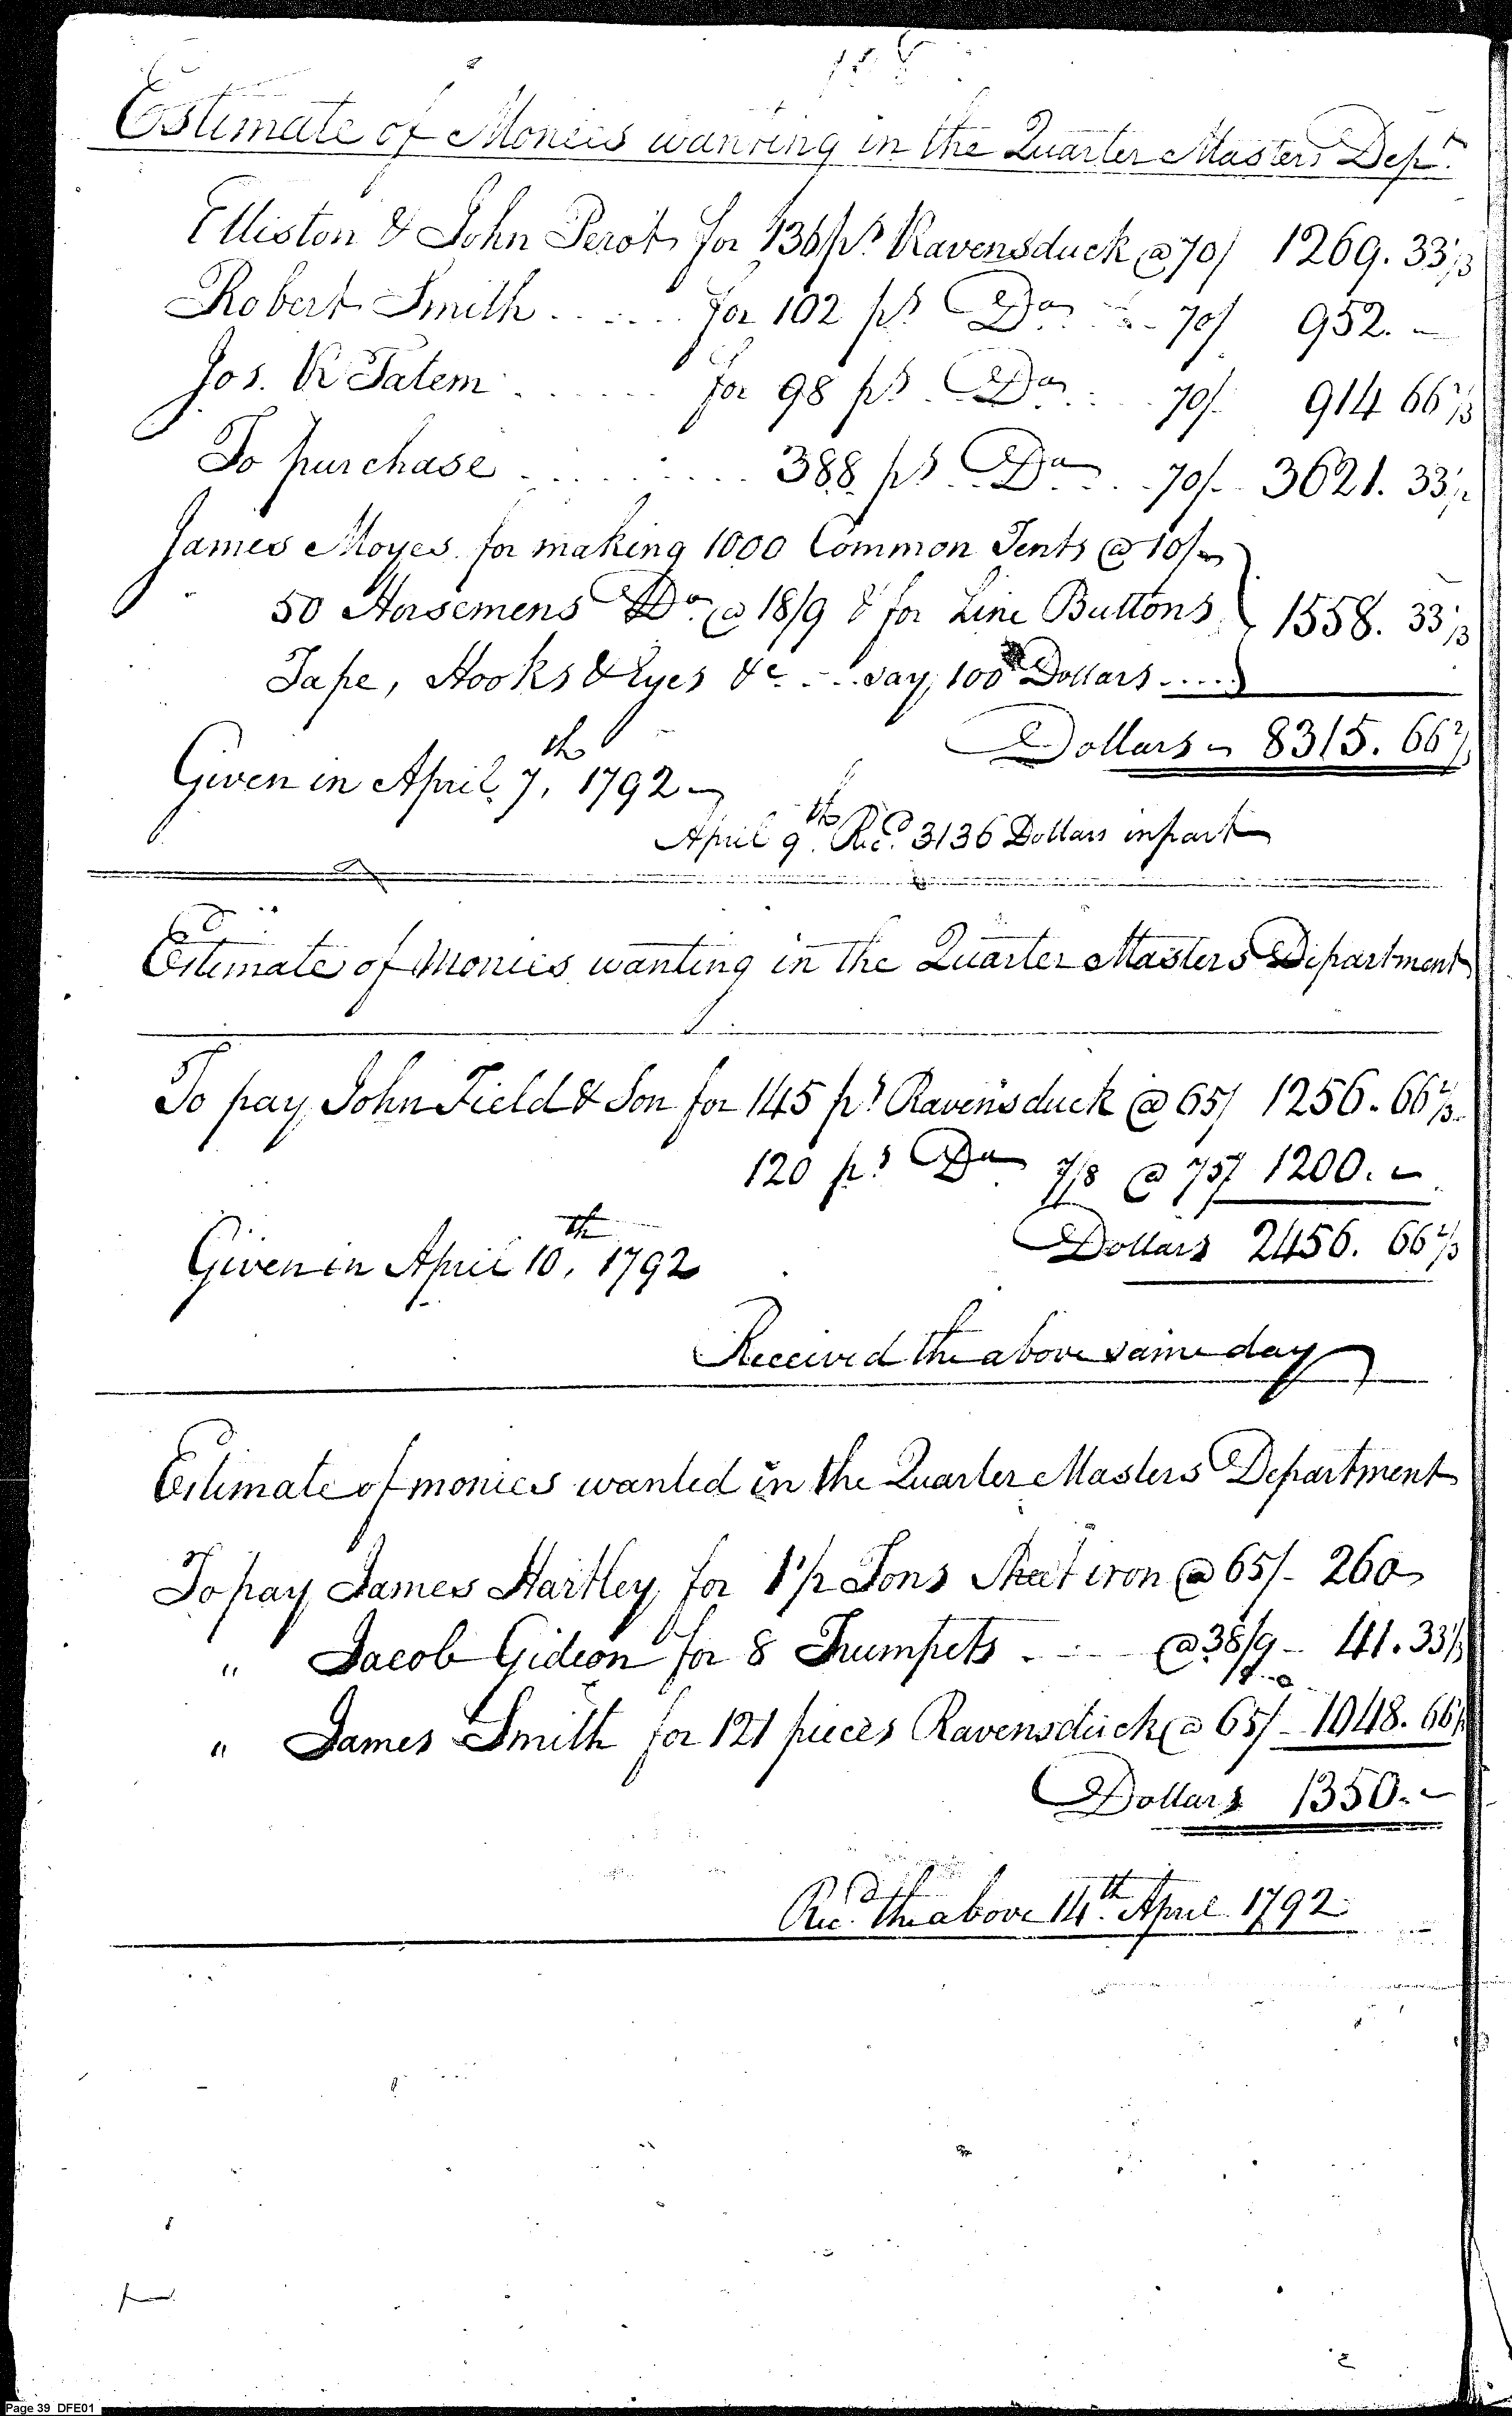 Estimate of Monies wanting in the Quarter Masters Dept.
Elliston & John Perot for 136 ps Ravensduck @ 70/ 1269. 33 1/3
Robert Smith ...... for 102 ps Do ... 70/ 952. -
Jos. R Tatem ...... for 98 ps Do .... 70/. 914 66 2/3
To purchase .......... 388 ps Do ... 70/. 3621. 33 1/3
James Moyes for making 1000 Common Tents @ 10/
50 Horsemens Do @ 18/9 & for Line Buttons } 1558. 33 1/3
Tape, Hooks & Eyes &c ... say, 100 Dollars ....
Dollars 8315. 66 2/3
Given in April 7th, 1792
April 9th Recd 3136 Dollars in part
Estimate of monies wanting in the Quarter Masters Department
To pay John Field & Son for 145 ps Ravensduck @ 65/ 1256. 66 2/3
120 ps Do 7/8 @ 75/ 1200. -
Dollars 2456. 66 2/3
Given in April 10th, 1792
Received the above same day
Estimate of monies wanted in the Quarter Masters Department
To pay James Hartley for 1 1/2 Tons Sheet iron @ 65/- 260
" Jacob Gideon for 8 Trumpets .... @ 38/9 - 41. 33 1/3
" James Smith for 121 pieces Ravensduck @ 65/- 1048. 66 2/3
Dollars 1350. -
Recd. the above 14th. April 1792
Page 39 DFE01